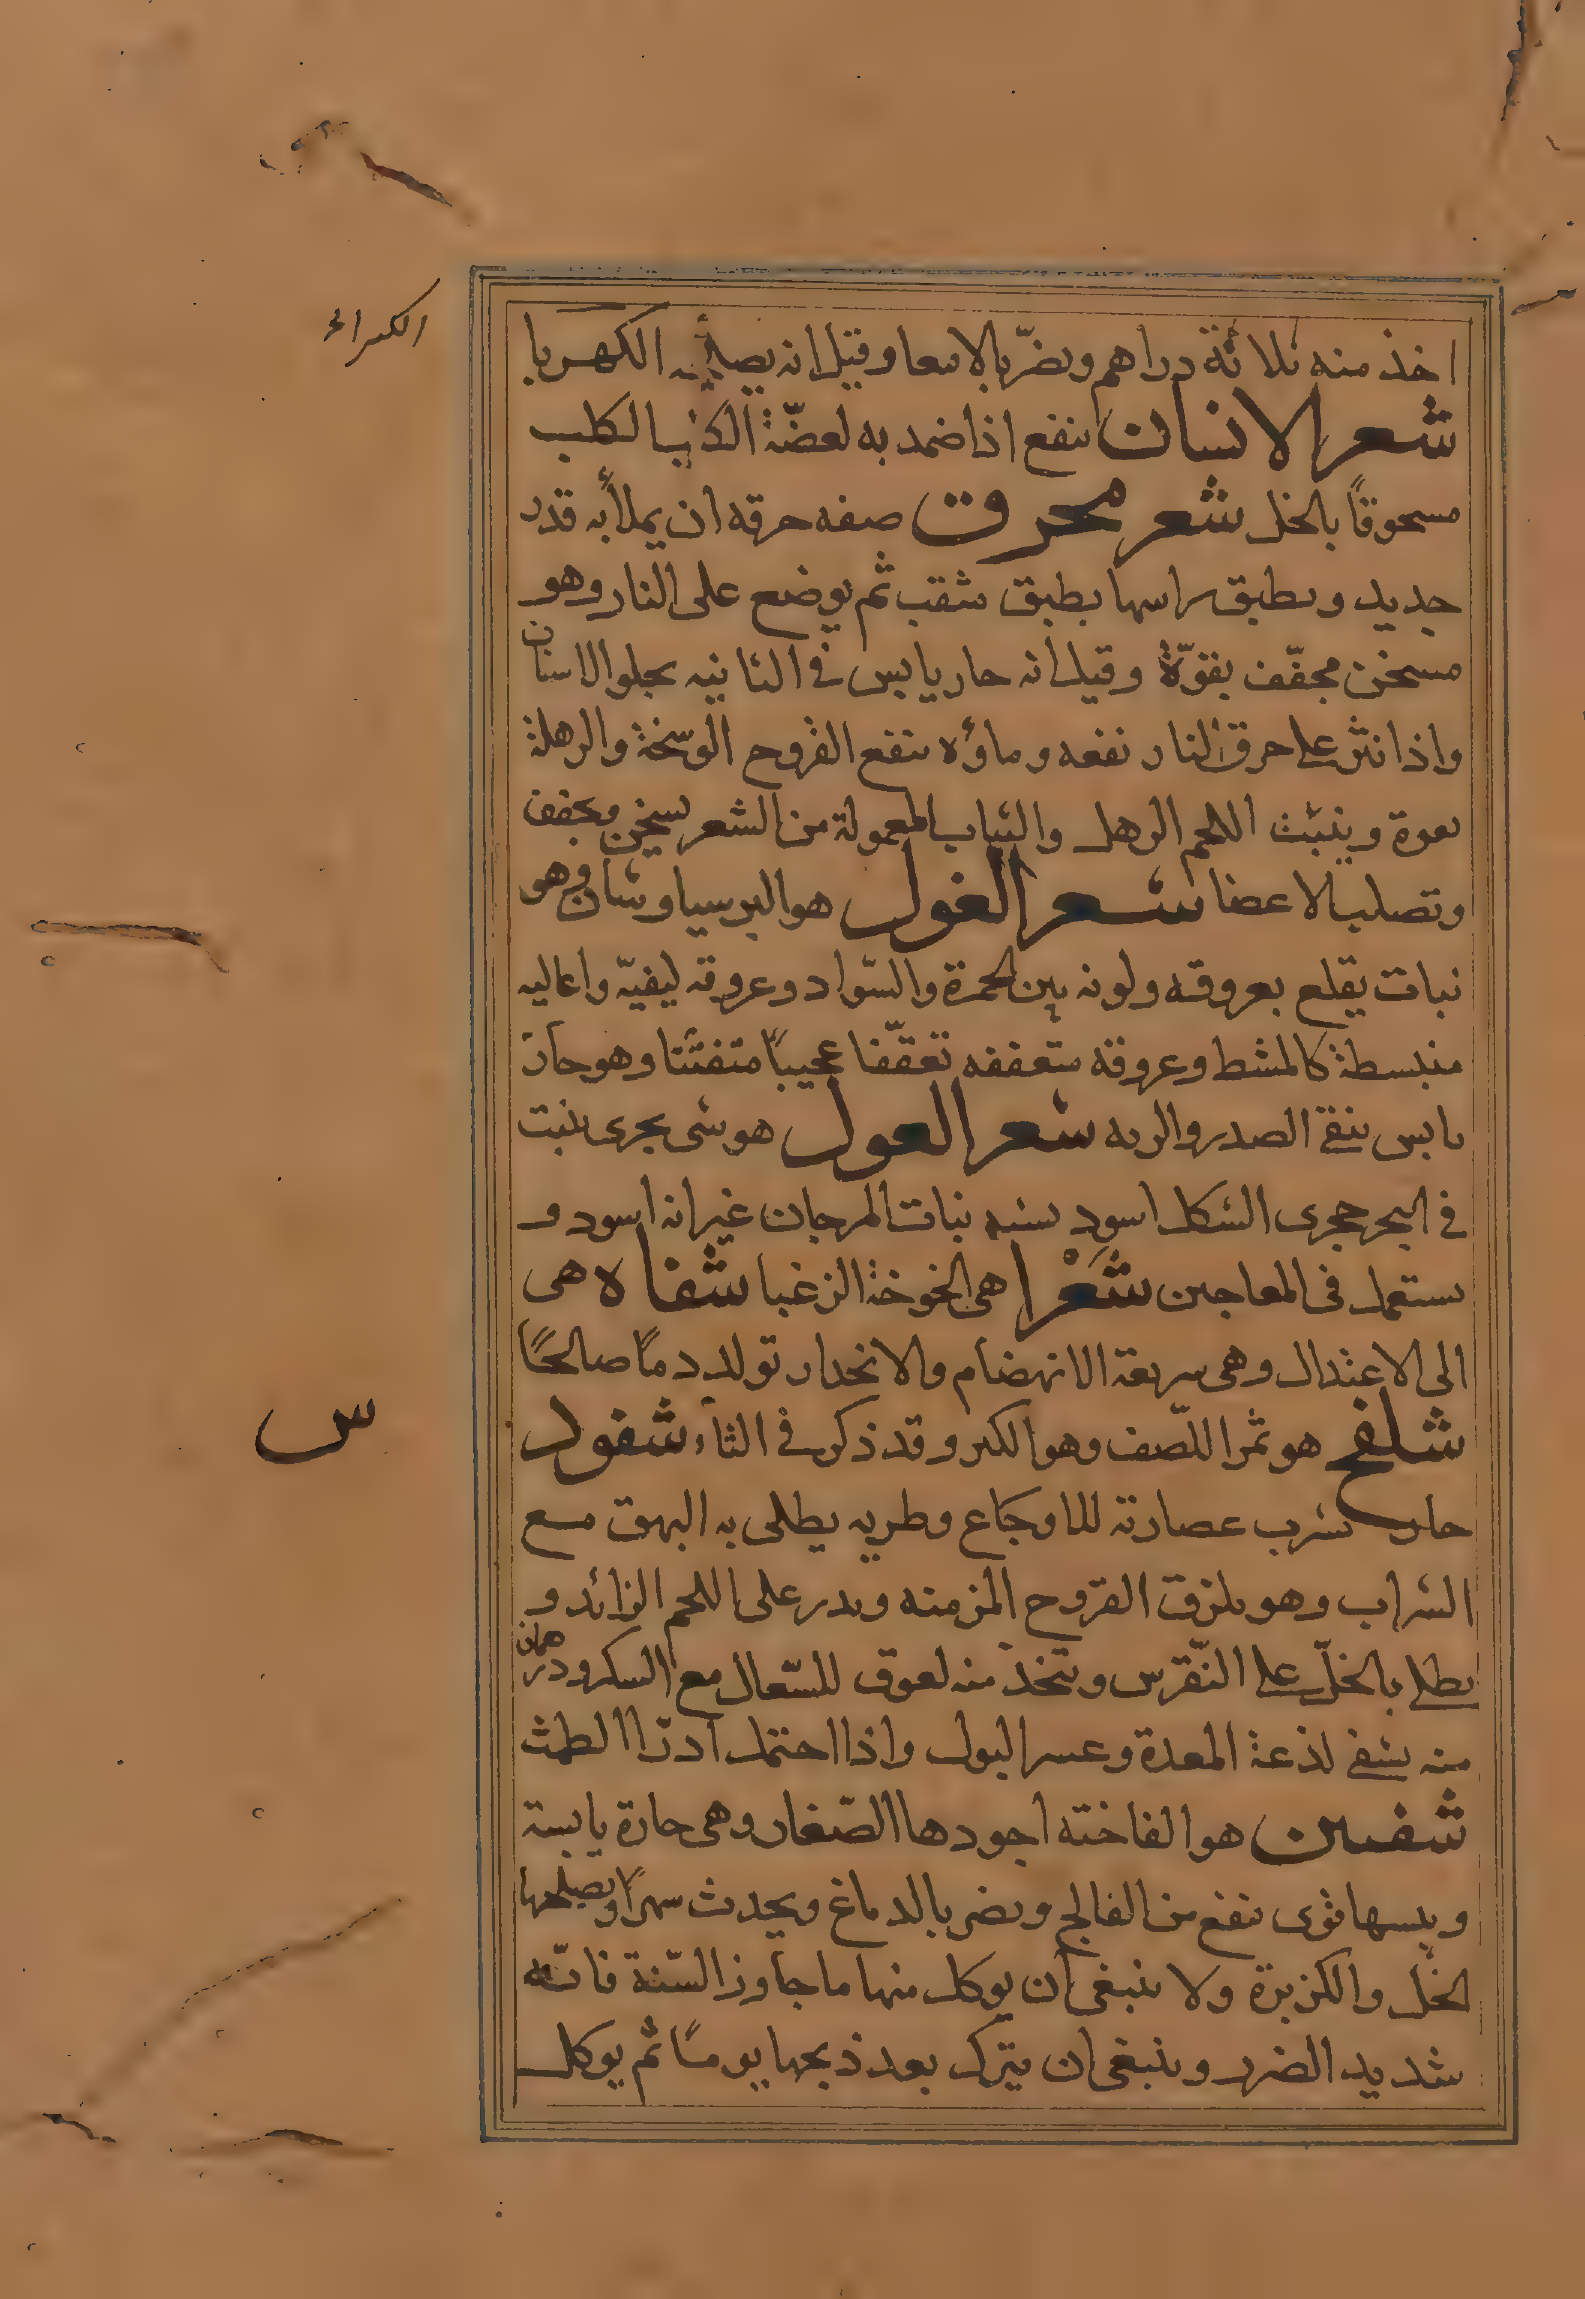 الكبراء
اخذ منه ثلاثة دراهم ويضرّ بالامعا وقيل انه يصلحه الكهربا
شعر الانسان ينفع اذا ضمد به لعضّة الكلب الكلب
مسحوقاً بالخل شعر محرق صفه حرقه ان يملأ به قدر
جديد ويطبق راسها بطبق مثقب ثم يوضع على النار وهو
مسخن مجفّف بقوّة وقيل انه حار يابس في الثانيه يجلوا الاسنان
واذا نثر على حرق النار نفعه وماؤه ينفع القروح الوسخة والرهلة
بقوة وينبت اللحم الرهل والثياب المعمولة من الشعر يسخن ويجفف
وتصلب الاعضا شعر الغول هو البرسياوشان وهو
نبات يقلع بعروقه ولونه بين الحمرة والسّواد وعروقه ليفيّه واعاليه
منبسطة كالمشط وعروقه متعففه تعقّفا عجيباً متفتتا وهو حار
يابس ينقي الصدر والريه شعر العول هو شى بحرى ينبت
في البحر حجرى الشكل اسود يشبه نبات المرجان غير انه اسود و
يستعمل فى المعاجين شَعْرا هى الخوخة الزغبا شفاه هى
الى الاعتدال وهى سريعة الانهضام والانحدار تولد دماً صالحاً
شلفح هو ثمر اللّصف وهو الكبر وقد ذكر في الثاء شفول
حار تشرب عصارته للاوجاع وطريه يطلى به البهق مع
الشراب وهو يلزق القروح المزمنه ويدر على اللحم الزائد و
يطلى بالخلّ على النّقرس ويتخذ منه لعوق للسّعال مع السكر ودرهمان
منه يشفى لذعة المعدة وعسر البول واذا احتمل ادرّ الطمث
شفنين هو الفاخته اجودها الصّغار وهى حارة يابسة
ويبسها قوى ينفع من الفالج ويضر بالدماغ ويحدث سهرًا ويصلحها
الخل والكزبرة ولا ينبغى ان يوكل منها ما جاوز السّنة فانّه
شديد الضرر وينبغى ان يترك بعد ذبحها يومًا ثم يوكل
س